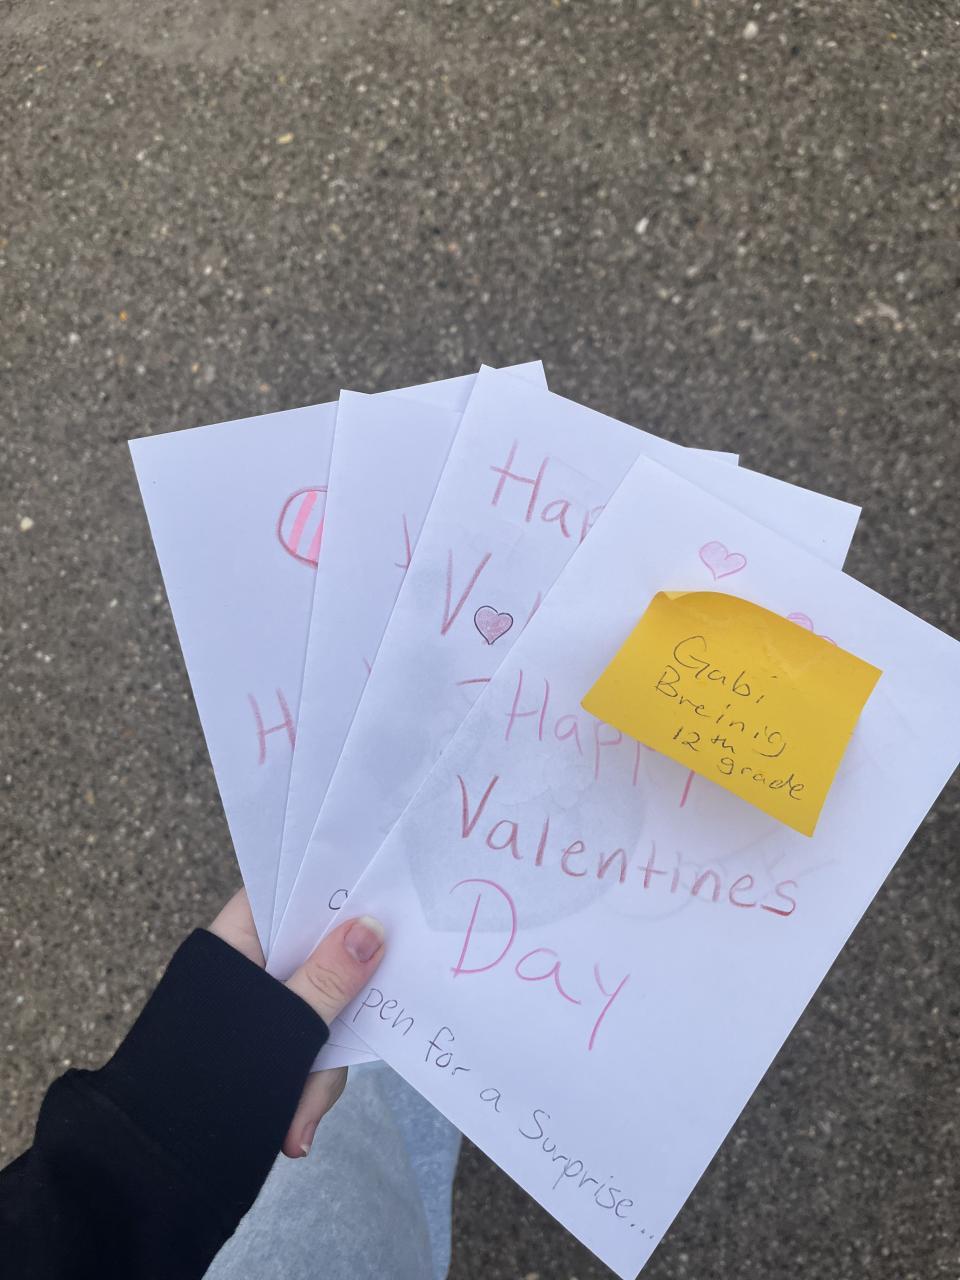 H
Hap
V
Gabi
Breinig
12th
grade
Happy
Valentines
Day
pen for a Surprise...